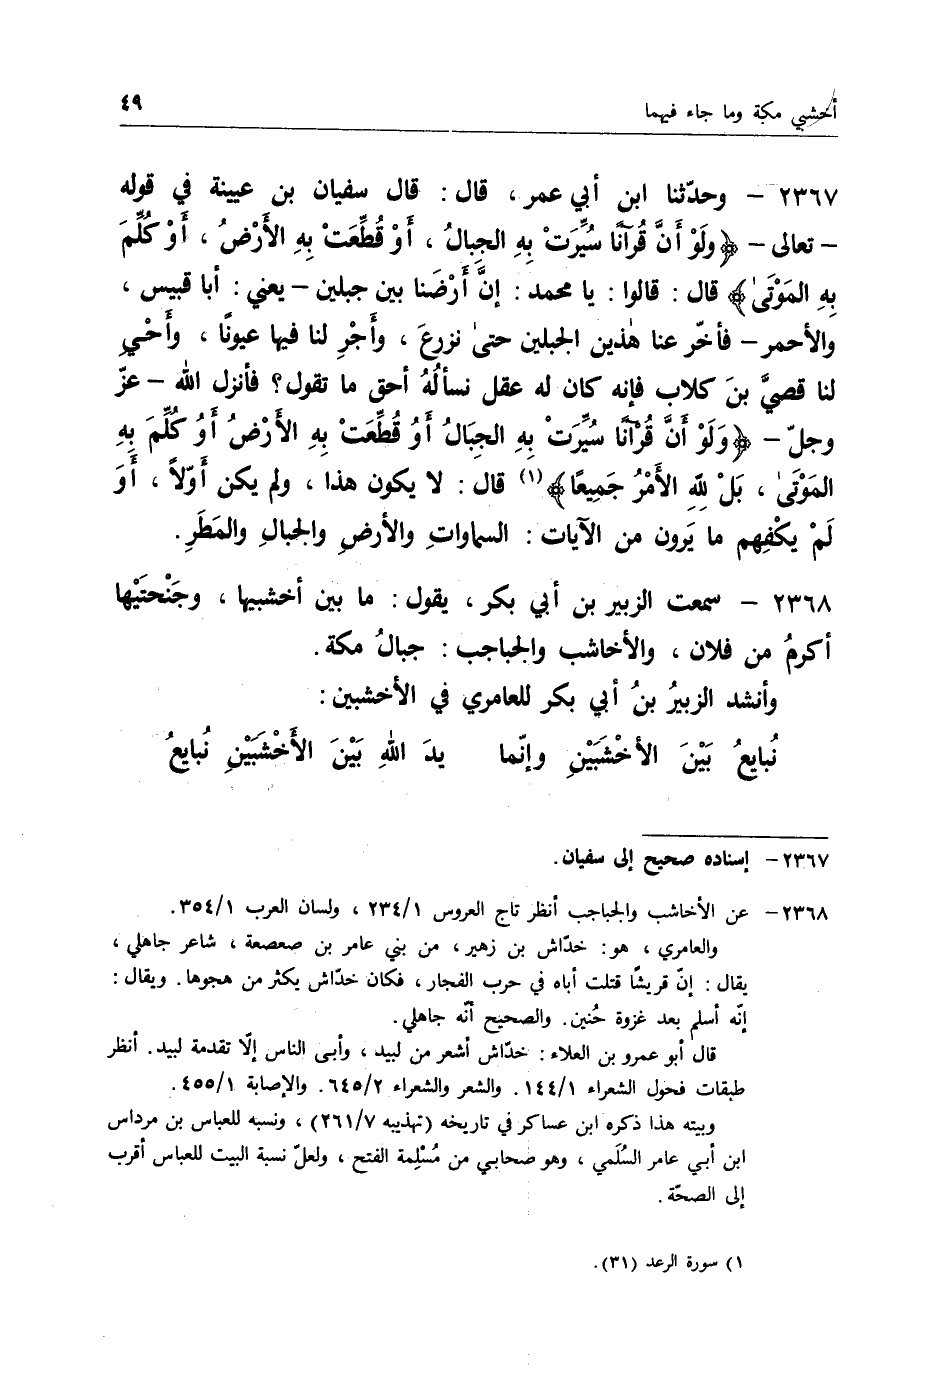 أخشبي مكة وما جاء فيهما ٤٩
٢٣٦٧ – وحدّثنا ابن أبي عمر ، قال : قال سفيان بن عيينة في قوله
– تعالى – ﴿ولَوْ أَنَّ قُرآنًا سُيِّرَتْ بِهِ الجبالُ ، أَوْ قُطِّعَتْ بِهِ الأَرْضُ ، أَوْ كُلِّمَ
بِهِ المَوْتَىٰ﴾ قال : قالوا : يا محمد : إنَّ أَرْضَنا بين جبلين – يعني : أبا قبيس ،
والأحمر – فأخّر عنا هٰذين الجبلين حتىٰ نزرعَ ، وأَجْرِ لنا فيها عيونًا ، وأَحْيِ
لنا قصيَّ بنَ كلاب فإنه كان له عقل نسألُهُ أحق ما تقول؟ فأنزل الله – عزّ
وجلّ – ﴿وَلَوْ أَنَّ قُرْآنًا سُيِّرَتْ بِهِ الجِبَالُ أَوُ قُطِّعَتْ بِهِ الأَرْضُ أَوُ كُلِّمَ بِهِ
المَوْتَىٰ ، بَلْ لِلّٰهِ الأَمْرُ جَمِيعًا﴾(١) قال : لا يكون هذا ، ولم يكن أَوّلاً ، أَوَ
لَمْ يكْفِهم ما يَرون من الآيات : السماواتِ والأرضِ والجبالِ والمَطَرِ.
٢٣٦٨ – سمعت الزبير بن أبي بكر ، يقول : ما بين أخشبيها ، وجَنْحتَيْها
أكرمُ من فلان ، والأخاشب والجباجب : جبالُ مكة .
وأنشد الزبيرُ بنُ أبي بكر للعامري في الأخشبين :
نُبايعُ بَيْنَ الأخْشَبَيْنِ وإنّما يدَ اللهِ بَيْنَ الأَخْشَبَيْنِ نُبايعُ
٢٣٦٧ – إسناده صحيح إلى سفيان .
٢٣٦٨ – عن الأخاشب والجباجب أنظر تاج العروس ٢٣٤/١ ، ولسان العرب ٣٥٤/١.
والعامري ، هو : خدّاش بن زهير ، من بني عامر بن صعصعة ، شاعر جاهلي ،
يقال : إنّ قريشًا قتلت أباه في حرب الفجار ، فكان خدّاش يكثر من هجوها . ويقال :
إنّه أسلم بعد غزوة حُنين. والصحيح أنّه جاهلي.
قال أبو عمرو بن العلاء : خدّاش أشعر من لبيد ، وأبى الناس إلّا تقدمة لبيد . أنظر
طبقات فحول الشعراء ١٤٤/١ . والشعر والشعراء ٦٤٥/٢. والإصابة ٤٥٥/١ .
وبيته هذا ذكره ابن عساكر في تاريخه (تهذيبه ٢٦١/٧) ، ونسبه للعباس بن مرداس
ابن أبي عامر السُلَمي ، وهو صحابي من مُسْلِمة الفتح ، ولعلّ نسبة البيت للعباس أقرب
إلى الصحّة .
١) سورة الرعد (٣١).